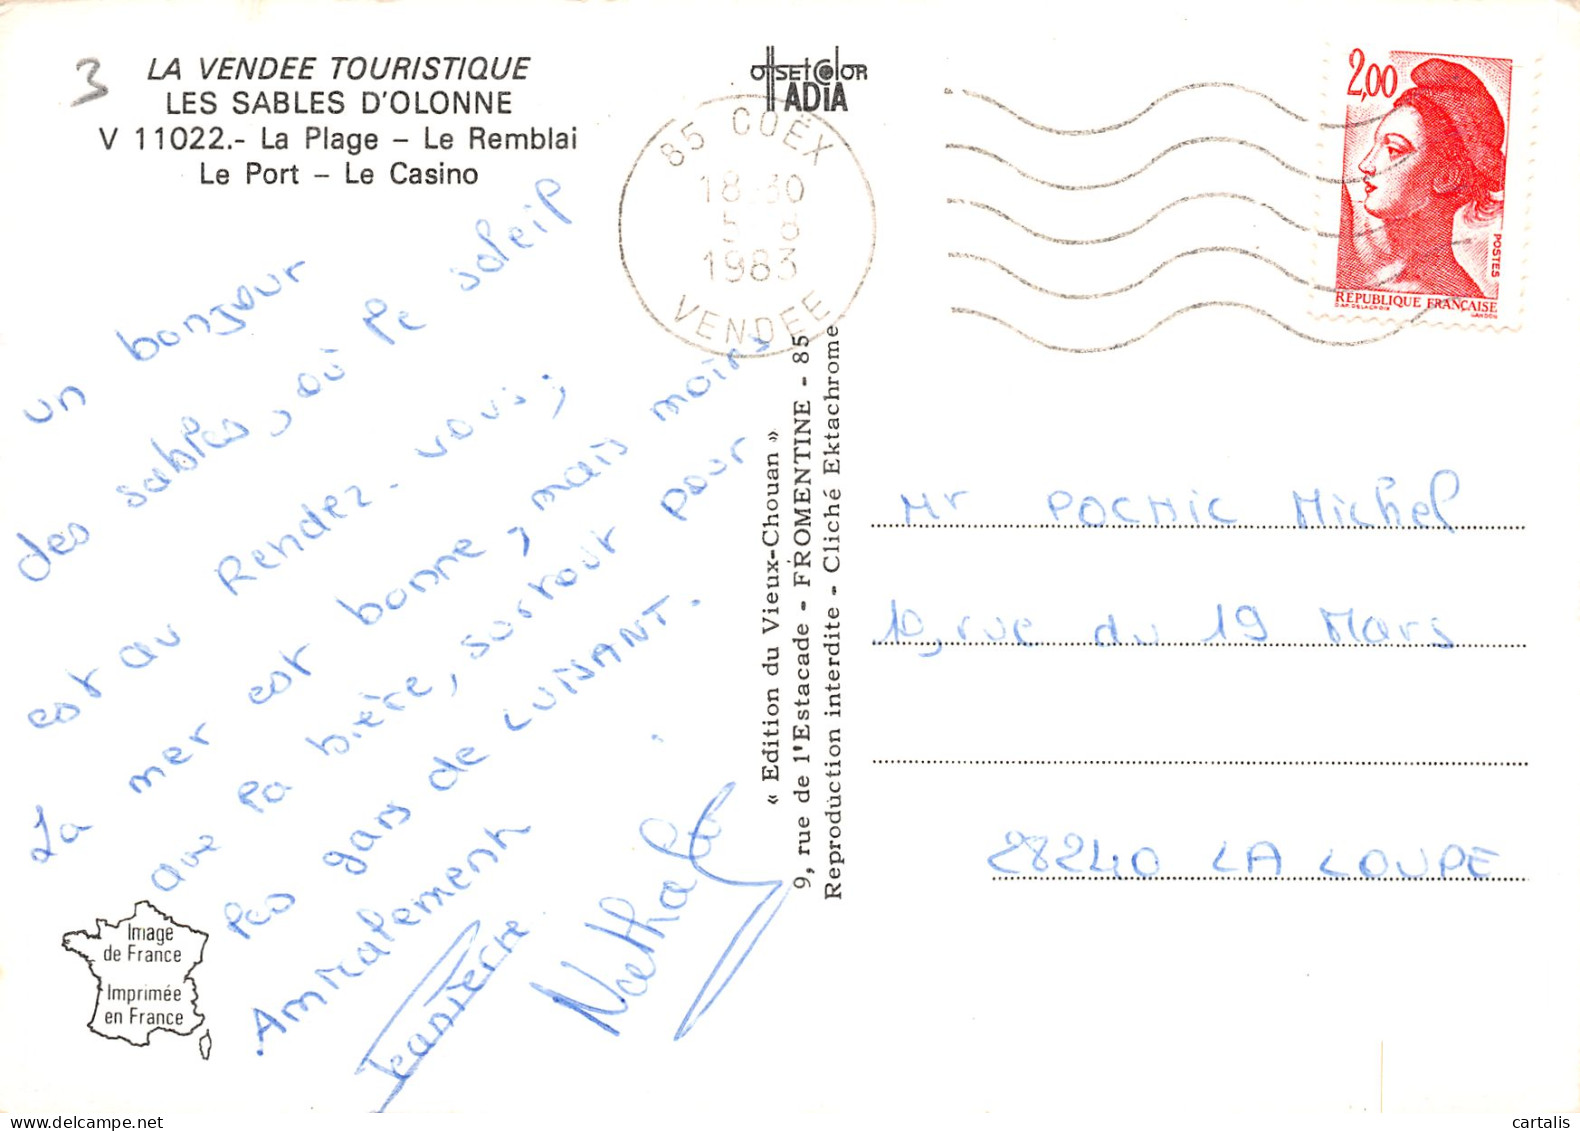 3
LA VENDEE TOURISTIQUE
LES SABLES D'OLONNE
V 11022.- La Plage – Le Remblai
Le Port – Le Casino
un bonjour
des sables, où le soleil
est au Rendez-vous;
La mer est bonne, mais moins
que la bière, surtout pour
les gars de LUISANT.
Amicalement
Nathalie
Image
de France
Imprimée
en France
OffSEt COlOR
ADIA
85 COËX
18 30
5 8
1983
VENDEE
« Edition du Vieux-Chouan »
9, rue de l'Estacade - FROMENTINE - 85
Reproduction interdite - Cliché Ektachrome
2,00
POSTES
REPUBLIQUE FRANÇAISE
D'AP. DELACROIX
GANDON
Mr POCHIC Michel
10, rue du 19 Mars
28240 LA LOUPE
cartalis